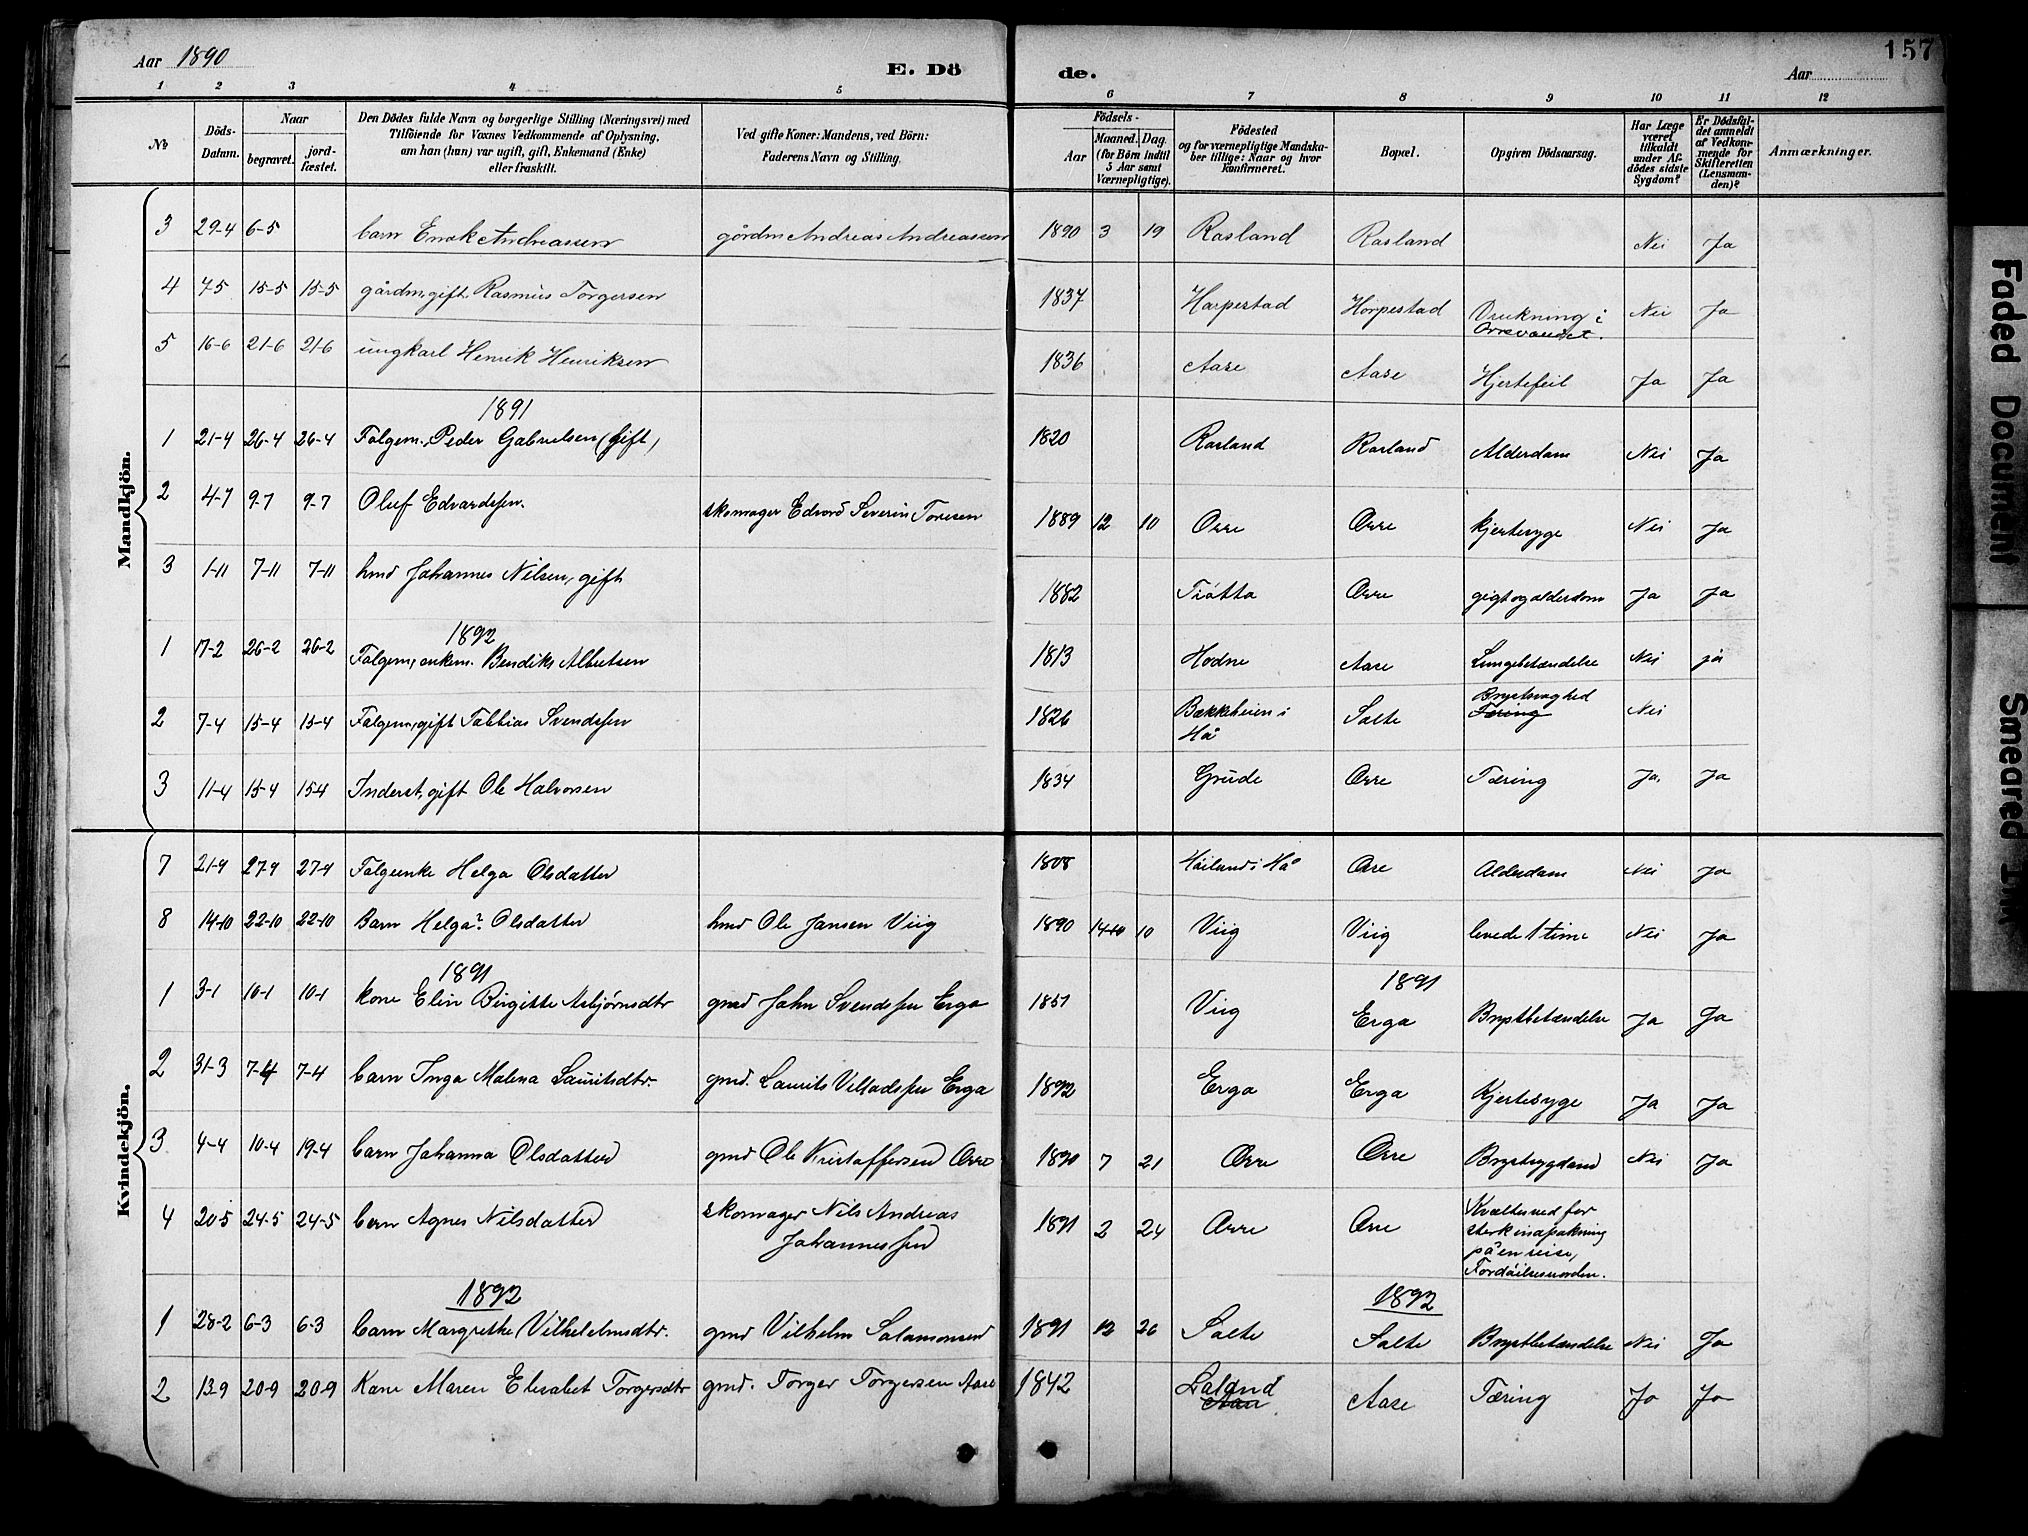 Aar 1890
E. Dö
de.
Aar
157
1 2 3 4 5 6 7 8 9 10 11 12
№
Döds-Datum.
Naar
begravet.
jord-fæstet.
Den Dödes fulde Navn og borgerlige Stilling (Næringsvei) med
Tilföiende for Voxnes Vedkommende af Oplysning,
om han (hun) var ugift, gift, Enkemand (Enke)
eller fraskilt.
Ved gifte Koner: Mandens, ved Börn:
Faderens Navn og Stilling.
Födsels-
Aar
Maaned. Dag.
(for Börn indtil
5 Aar samt
Værnepligtige).
Födested
og for værnepligtige Mandska-
ber tillige: Naar og hvor
konfirmeret.
Bopæl.
Opgiven Dödsaarsag.
Har Læge
været
tilkaldt
under Af-
dödes sidste
Sygdom?
Er Dödsfal-
det anmeldt
af Vedkom-
mende for
Skifteretten
(Lensman-
den)?
Anmærkninger.
Mandkjön.
3 29-4 6-5 barn Enok Andreassen gårdm Andreas Andreassen 1890 3 19 Rosland Rosland Nei Ja
4 7-5 15-5 15-5 gårdm, gift Rasmus Torgersen 1837 Harpestad Horpestad Drukning i Orrevandet. Nei Ja
5 16-6 21-6 21-6 ungkarl Henrik Henriksen 1836 Aase Aase Hjertefeil Ja Ja
1891
1 21-4 26-4 26-4 Folgem. Peder Gabrielsen (gift) 1820 Rosland Rosland Alderdom Nei Ja
2 4-7 9-7 9-7 Oluf Edvardssen. skomager Edvard Severin Toresen 1889 12 10 Orre Orre Kjertesyge Nei Ja
3 1-11 7-11 7-11 hmd Johannes Nilsen, gift 1882 Orre gigt og alderdom Ja Ja
1892
1 17-2 26-2 26-2 Folgem, enkem. Bendiks Albretsen 1813 Hodne Aase Lungebetændelse Nei ja
2 7-4 15-4 15-4 Folgem, gift Tobbias Svendssen 1826 Bækkeheien i Hå Salte Tæring Nei
3 11-4 15-4 15-4 Inderst, gift Ole Halvorsen 1834 Grude Orre Tæring Ja, Ja
Kvindekjön.
7 21-9 27-9 27-9 Folgeenke Helga Olsdatter 1808 Høiland i Hå Orre Alderdom Nei Ja
8 14-10 22-10 22-10 Barn Helga? Olsdatter hmd Ole Jansen Viig 1890 14-10 10 Viig Viig levede 1 time Nei Ja
1891 1891
1 3-1 10-1 10-1 kone Elin Birgitte Asbjørnsdtr gmd John Svendssen Erga 1851 Viig Erga Brystbetændelse Ja Ja
2 31-3 7-4 7-4 barn Inga Malena Lauritsdtr. gmd. Laurits Villadssen Erga 1892 Erga Erga Kjertesyge Ja Ja
3 4-4 10-4 19-4 barn Johanna Olsdatter gmd Ole Kristoffersen Orre 1890 7 21 Orre Orre Brystsygdom Nei Ja
4 20-5 24-5 24-5 barn Agnes Nilsdatter skomager Nils Andreas
Johannessen 1891 2 24 Orre Orre Kvaltes ved for
sterk indpakning
på en reise,
1892 1892
1 28-2 6-3 6-3 barn Margrethe Vilhelmsdtr. gmd Vilhelm Salamonsen 1891 12 26 Salte Salte Brystbetændelse Nei Ja
2 13-9 20-9 20-9 Kone Maren Elisabet Torgersdtr gmd. Torger Torgersen Aase 1842 Laland Aase Tæring Ja Ja
Faded Document
Smeared Ink